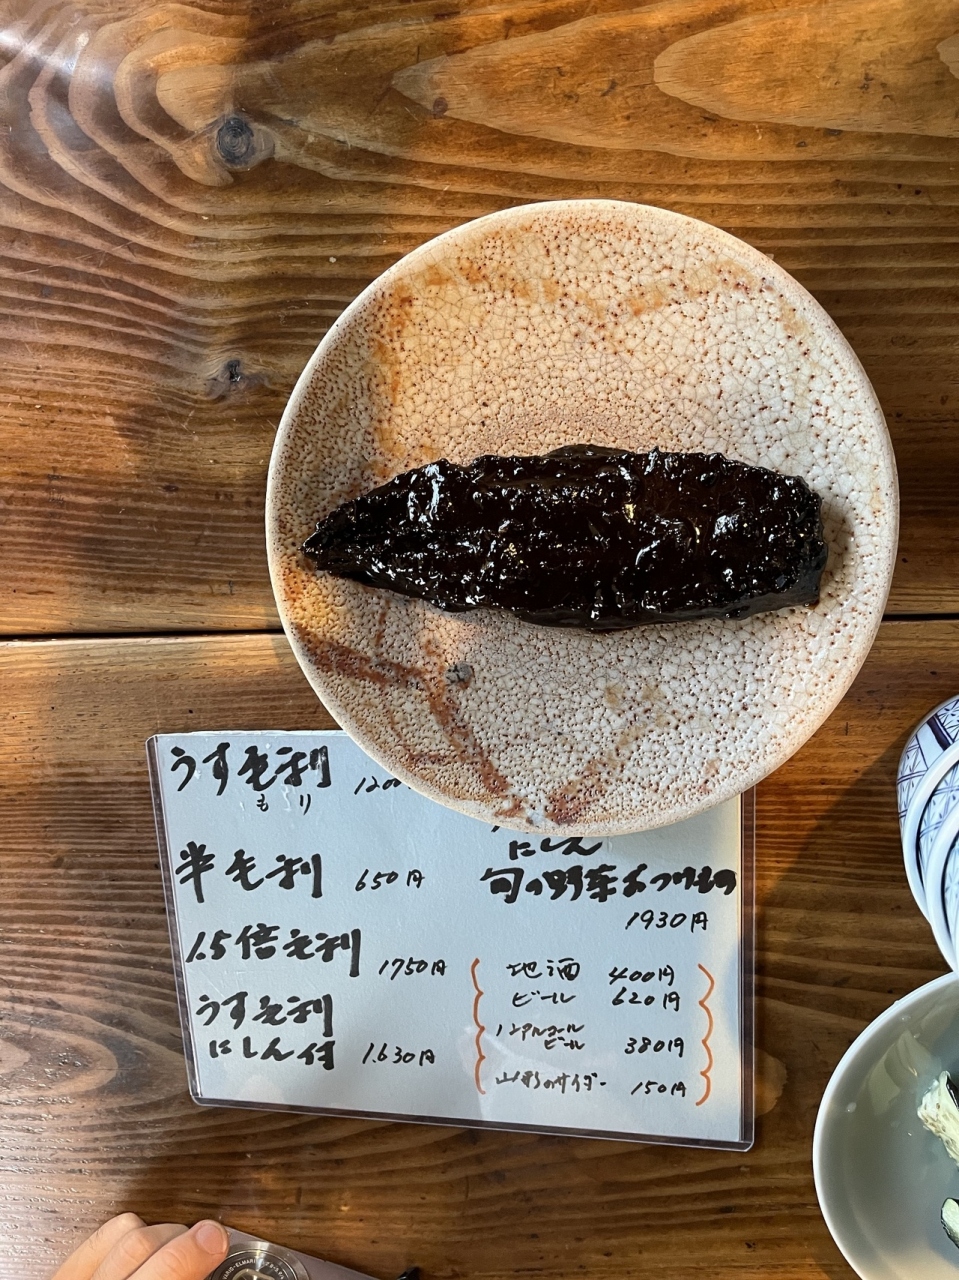 うす毛利 1200
もり
半毛利 650円
1.5倍毛利 1750円
うす毛利
にしん付 1.630円
にしん
旬の野菜おつけもの
1930円
地酒 400円
ビール 620円
ノンアルコール
ビール 380円
山形のサイダー 150円